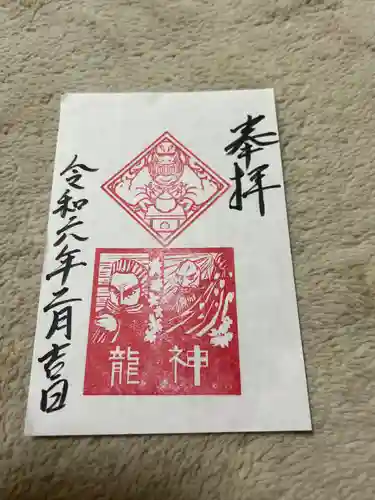 奉拝
龍神
令和六年二月吉日